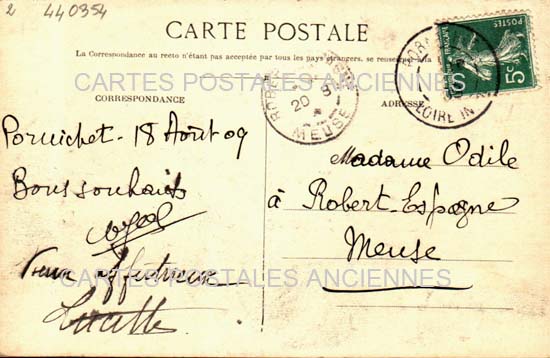 2 440354
CARTE POSTALE
La Correspondance au recto n'étant pas acceptée par tous les pays étrangers, se renseigner à la
CARTES POSTALES ANCIENNES
CORRESPONDANCE
ADRESSE
POSTES
5c
20 9
MEUSE
LOIRE IN
Pornichet - 18 Août 09
Bons souhaits
Madame Odile
à Robert-Espagne
Meuse
CARTES POSTALES ANCIENNES
Lucette